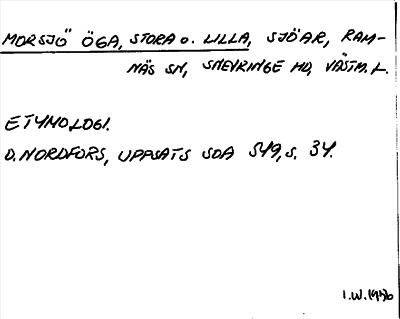 MORSJÖ ÖGA, STORA O. LILLA, SJÖAR, RAM-
NÄS SN, SNEVRINGE HD, VÄSTM. L.
ETYMOLOGI.
O. NORDFORS, UPPSATS SOA 549, S. 34.
I.W. 1946